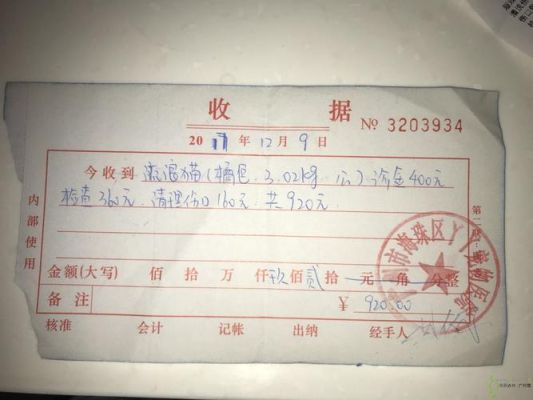 收 据
№ 3203934
2017 年 12 月 9 日
今收到 流浪猫(橘色,3.02kg,公)诊金400元
检查360元,清理伤口160元,共920元
内部使用
金额(大写) 佰 拾 万 仟 玖佰 贰拾 元 角 分整
备注 ¥ 920.00
市海珠区丫丫
核准 会计 记帐 出纳 经手人